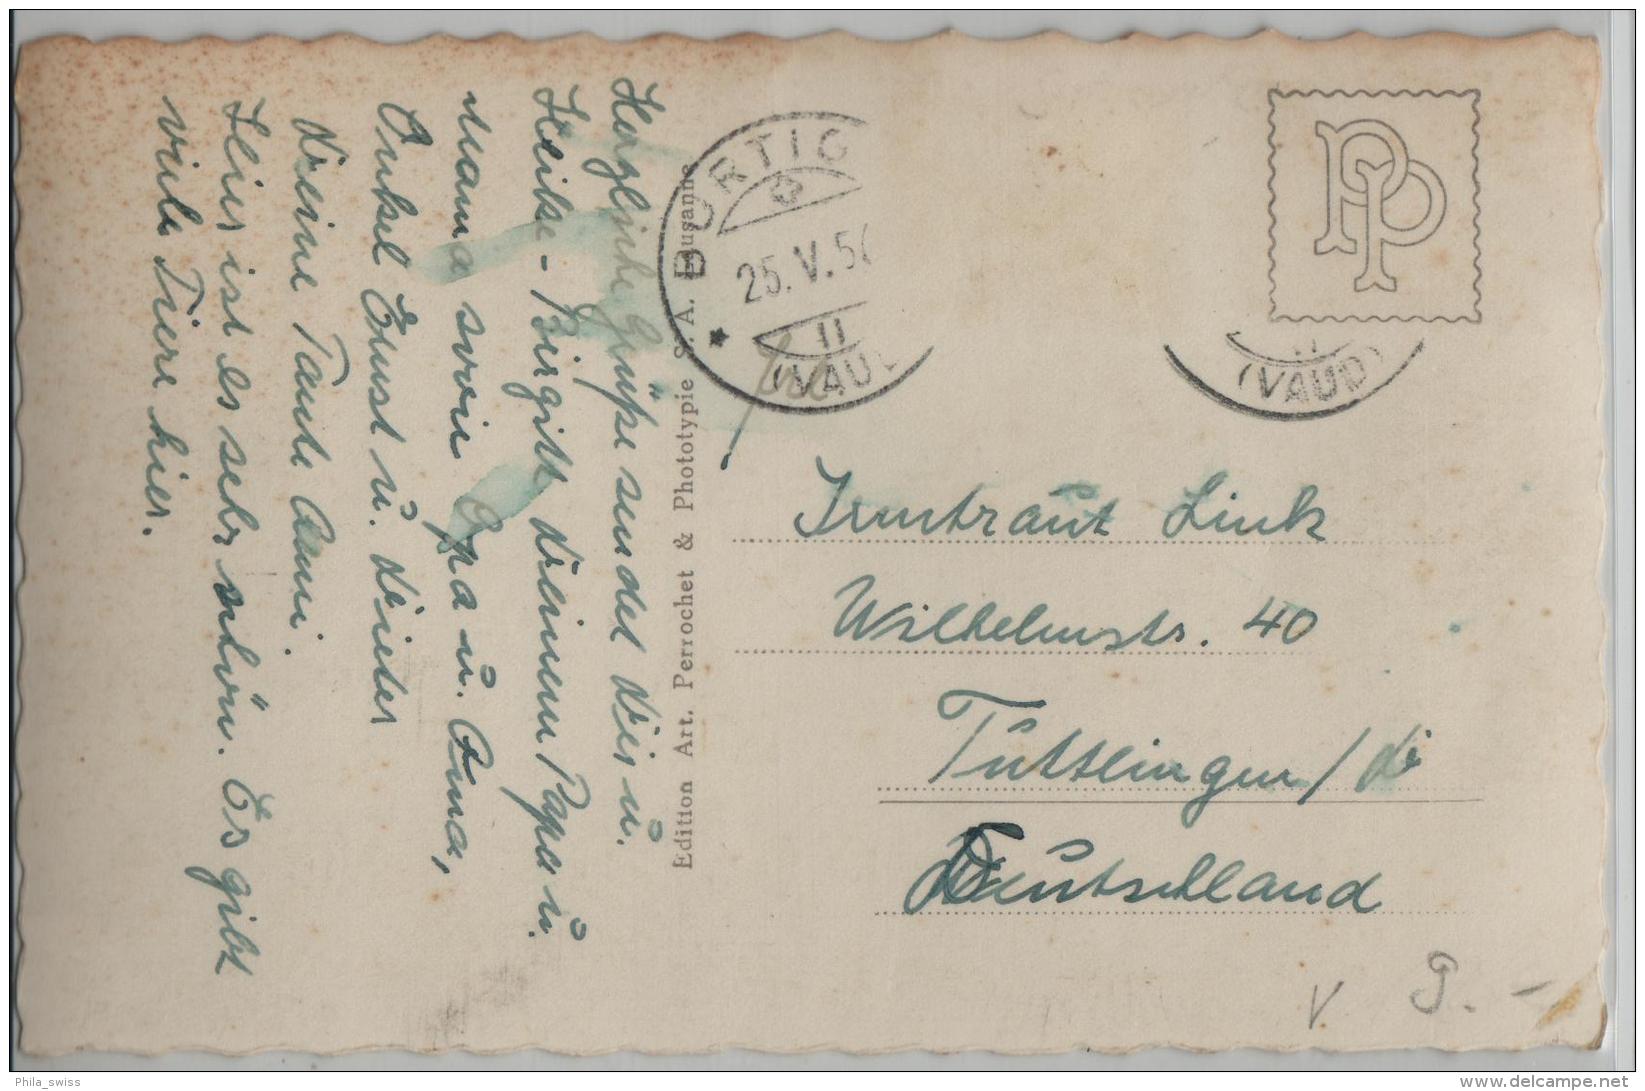 Herzliche Grüße sendet dir u.
Heike-Birgitt deinem Papa u.
Mama sowie Opa u. Oma,
Onkel Ernst u. dieter
deine Tante Anni.
Hier ist es sehr schön. Es gibt
viele Tiere hier.
Edition Art. Perrochet & Phototypie S. A. Lausanne
BURTIG
25.V.5
(VAUD
(VAUD)
PP
Frl
Irmtraut Link
Wilhelmstr. 40
Tuttlingen/
Deutschland
V 9.-
Phila_swiss
www.delcampe.net